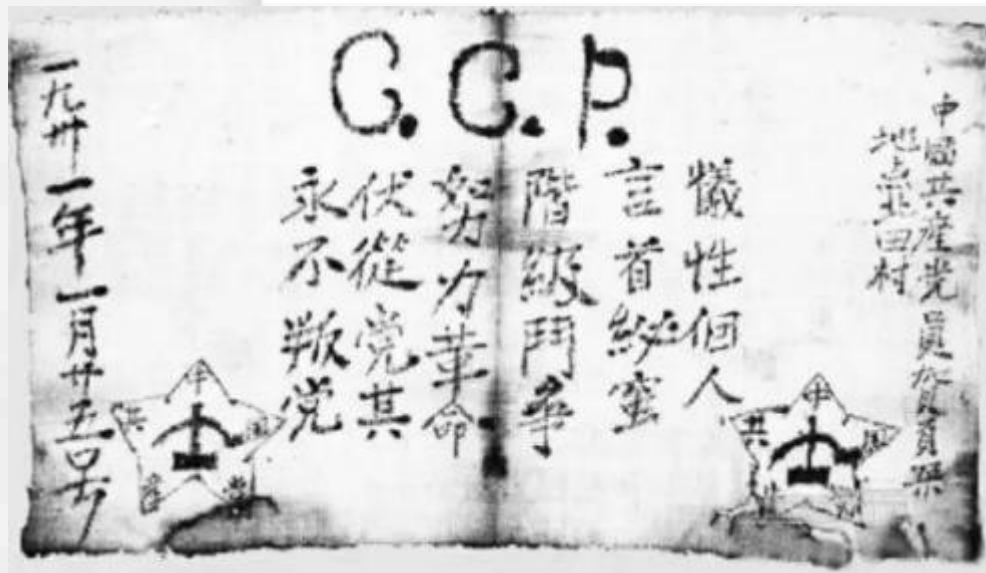 C.C.P.
中國共産党員賀頁朵
地点北田村
犧性個人
言首秘蜜
階級鬥爭
努力革命
伏從党其
永不叛党
一九卅一年一月廿五号
中国共
中国共